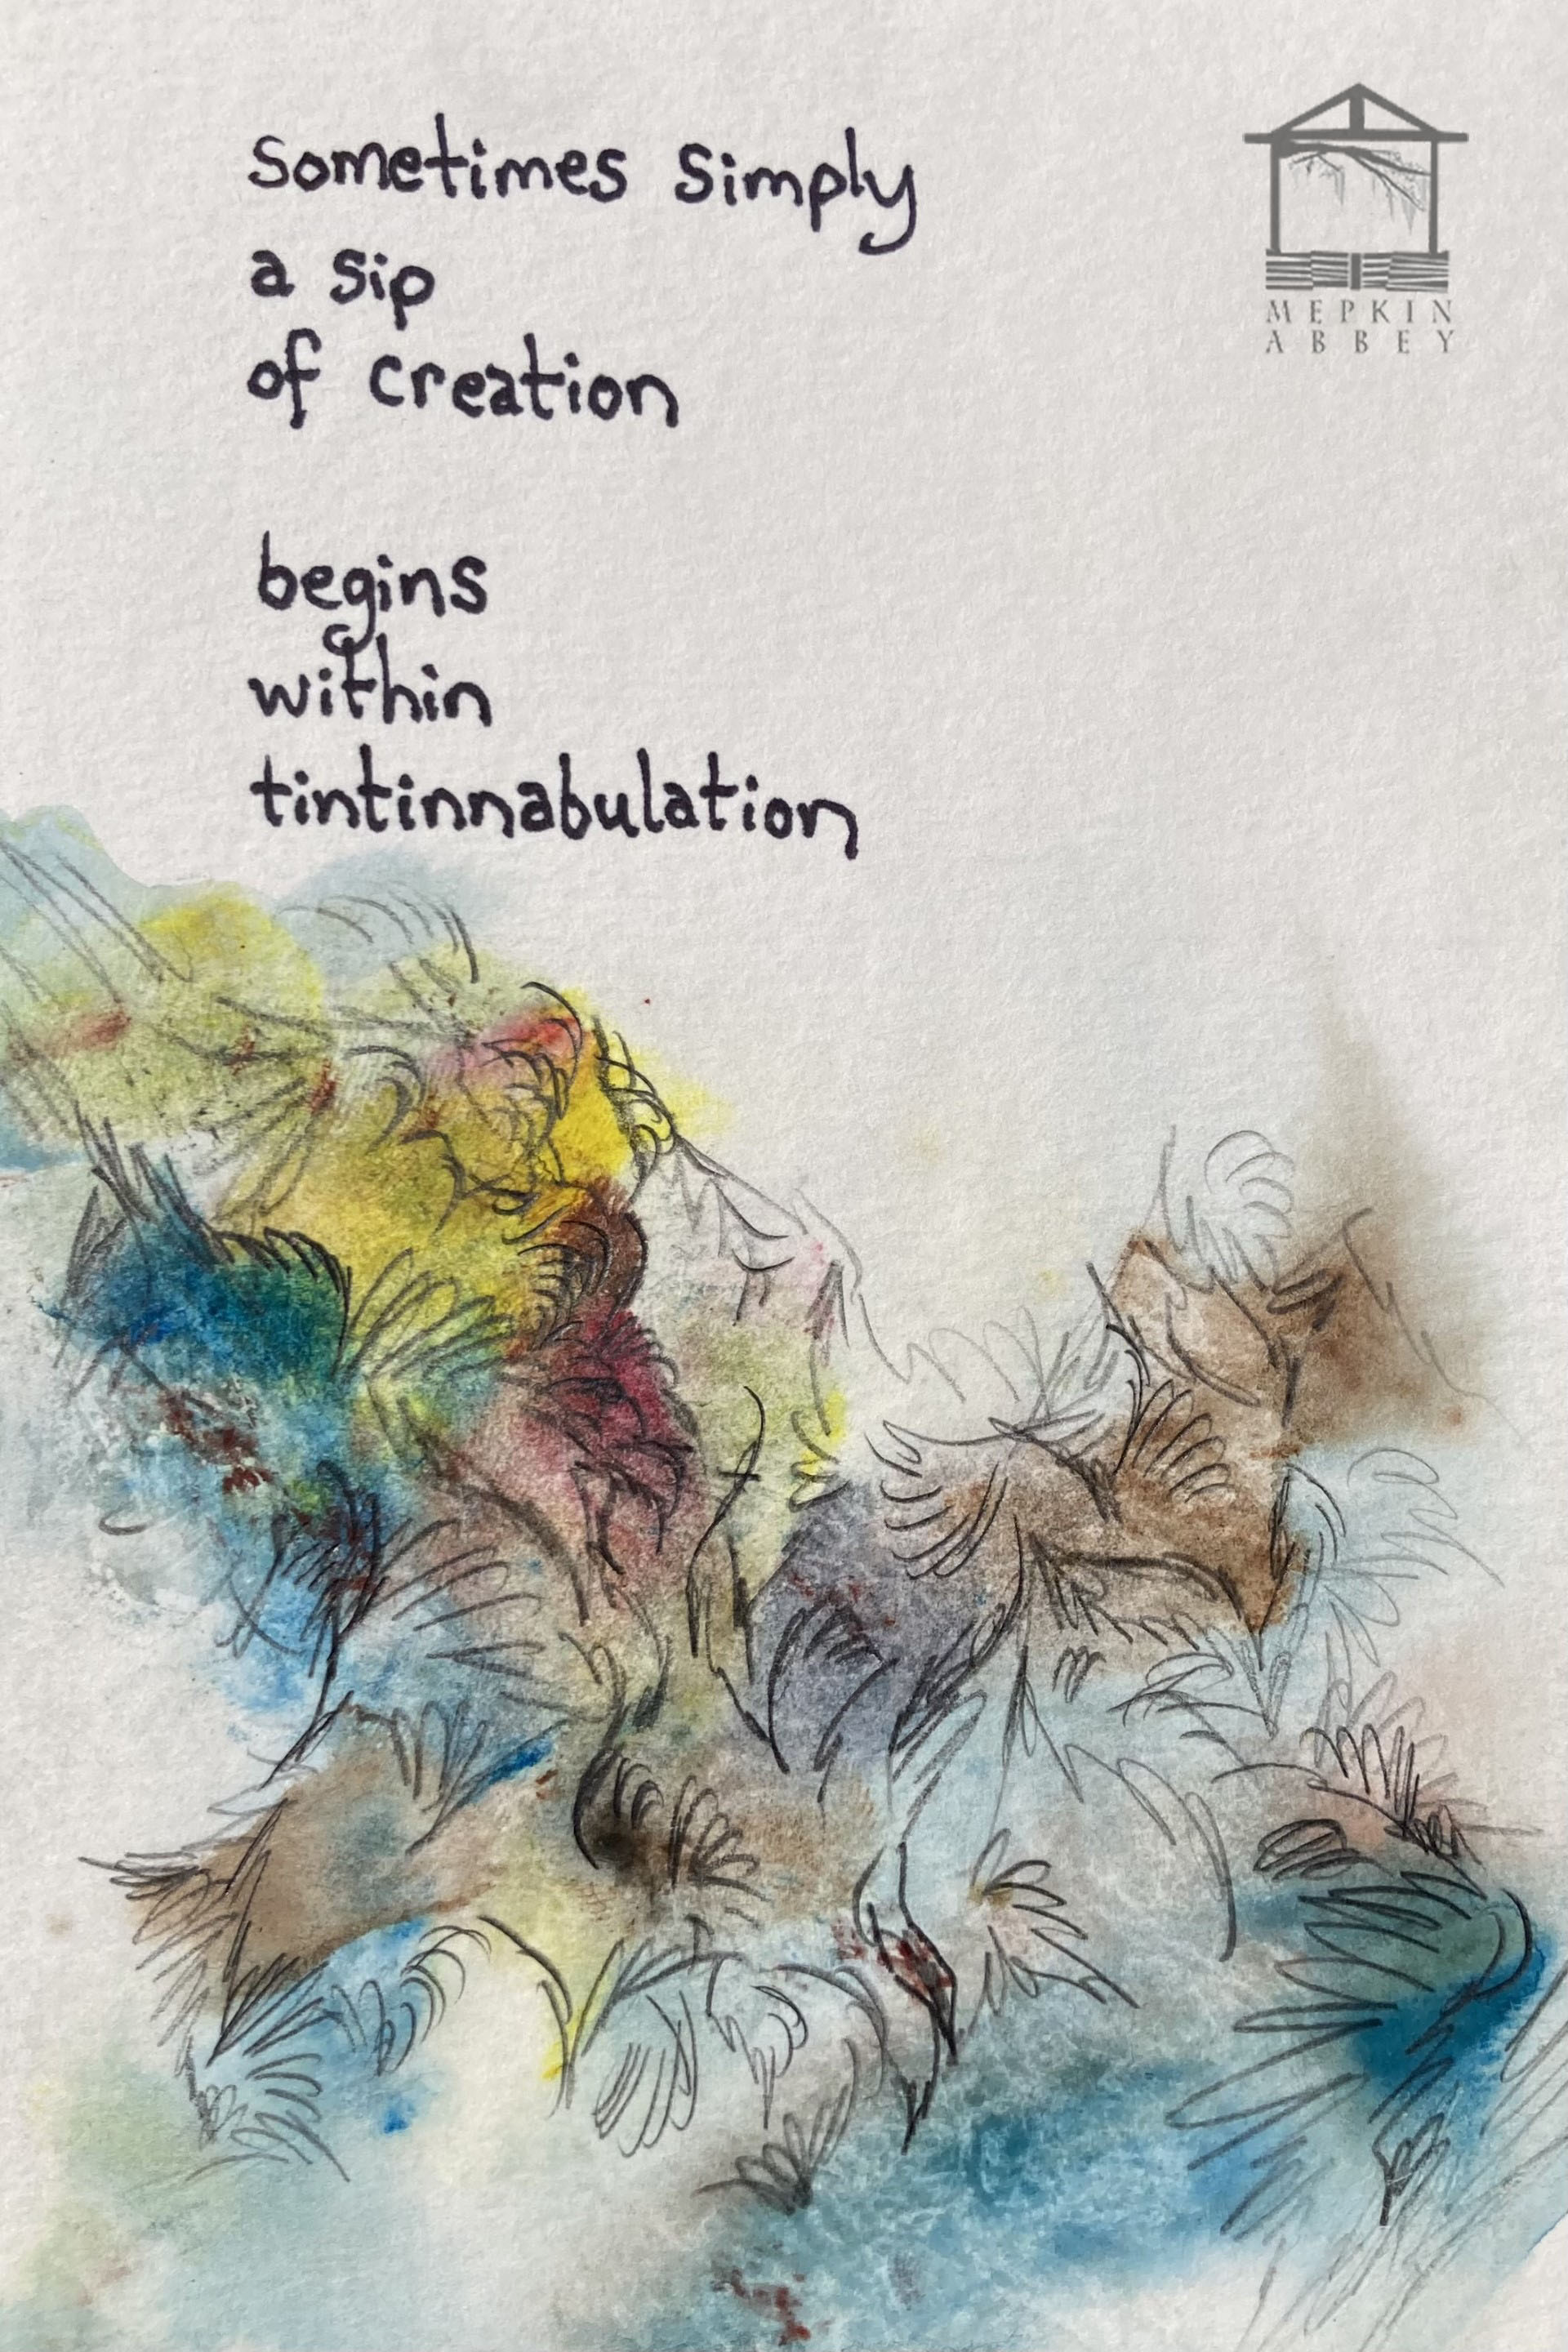 sometimes simply
a sip
of creation
begins
within
tintinnabulation
MEPKIN
ABBEY